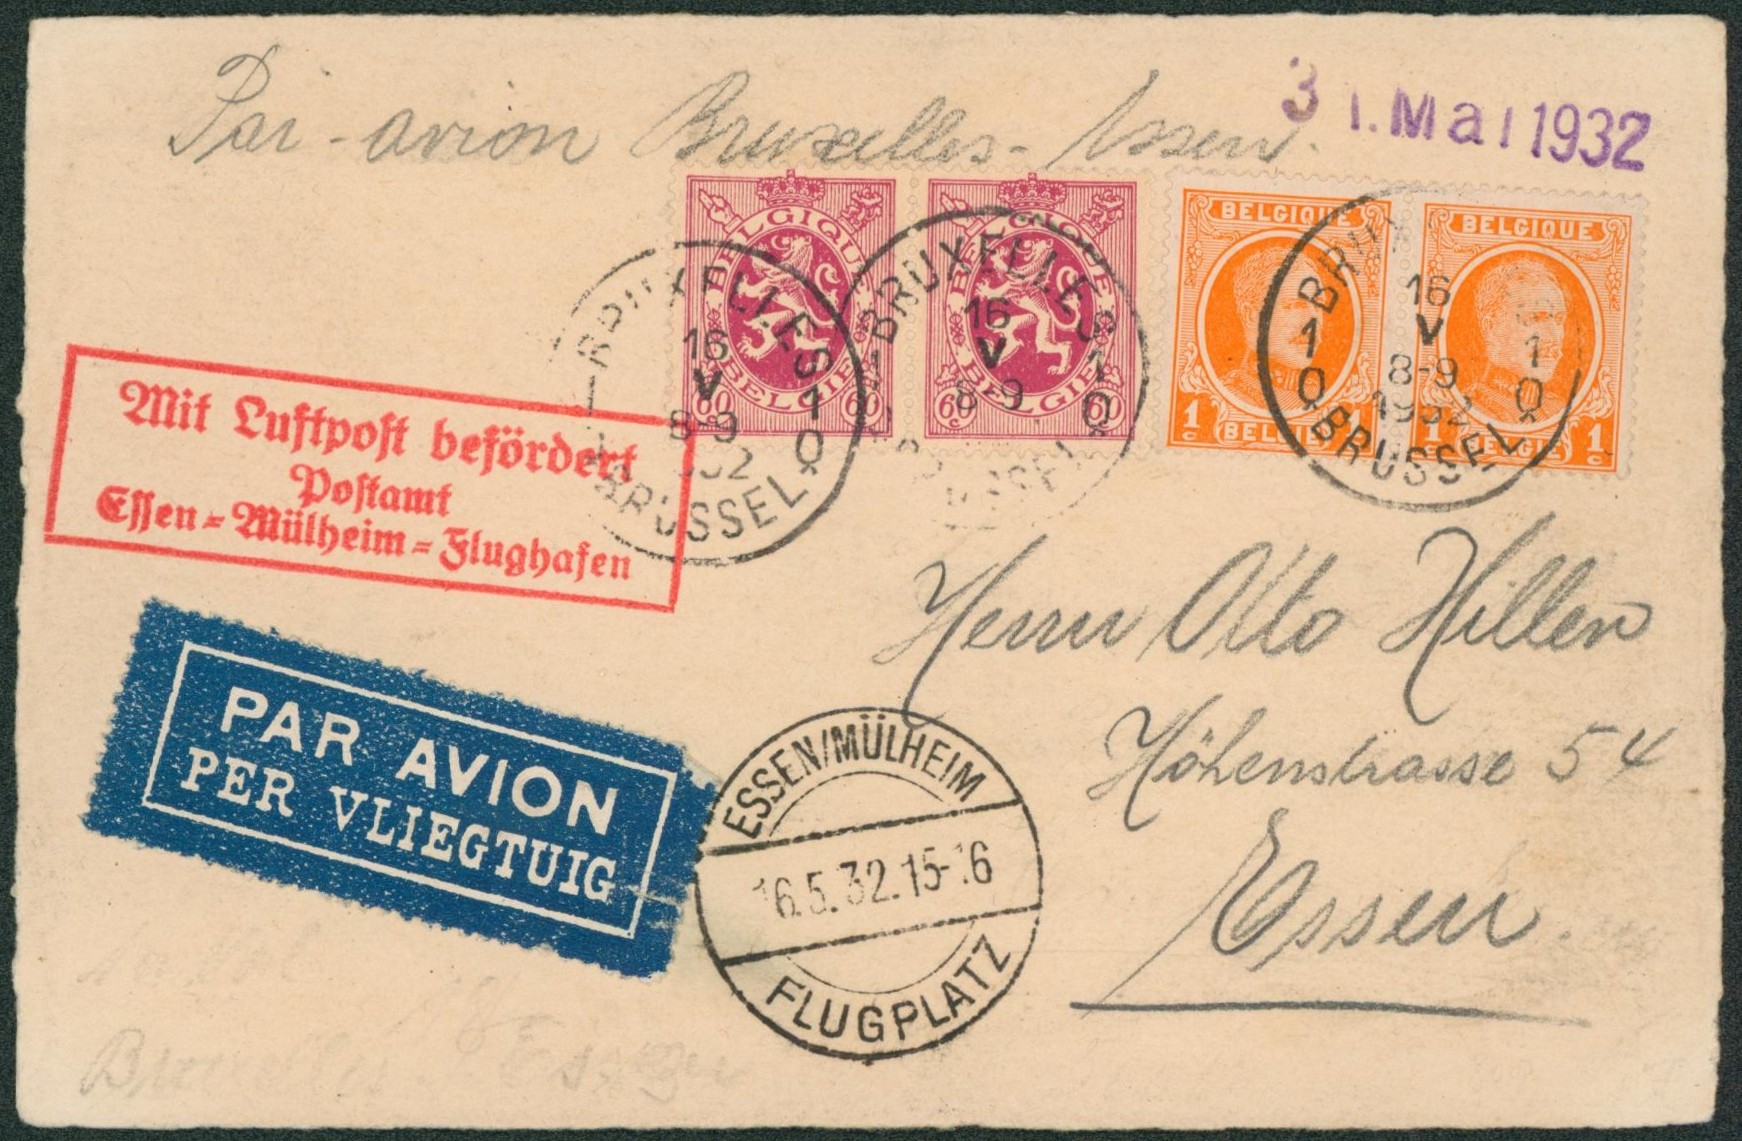 Par-avion Bruxelles-Essen.
31. Mai 1932
BELGIQUE
BELGIË
60 60
BELGIQUE
BELGIË
60 60
BELGIQUE
1c
BELGIË
BELGIQUE
1c BELGIË 1c
BRUXELLES
16
V
8-9
1
Q
BRUSSEL
BRUXELLES
16
V
8-9
1
Q
BRUSSEL
16
V
1 8-9 1
Q 1932 Q
BRUSSEL
Mit Luftpost befördert
Postamt
Essen=Mülheim=Flughafen
PAR AVION
PER VLIEGTUIG
ESSEN/MÜLHEIM
16.5.32.15-16
FLUGPLATZ
Herrn Otto Hillen
Höhenstrasse 54
Essen.
Bruxelles Essen